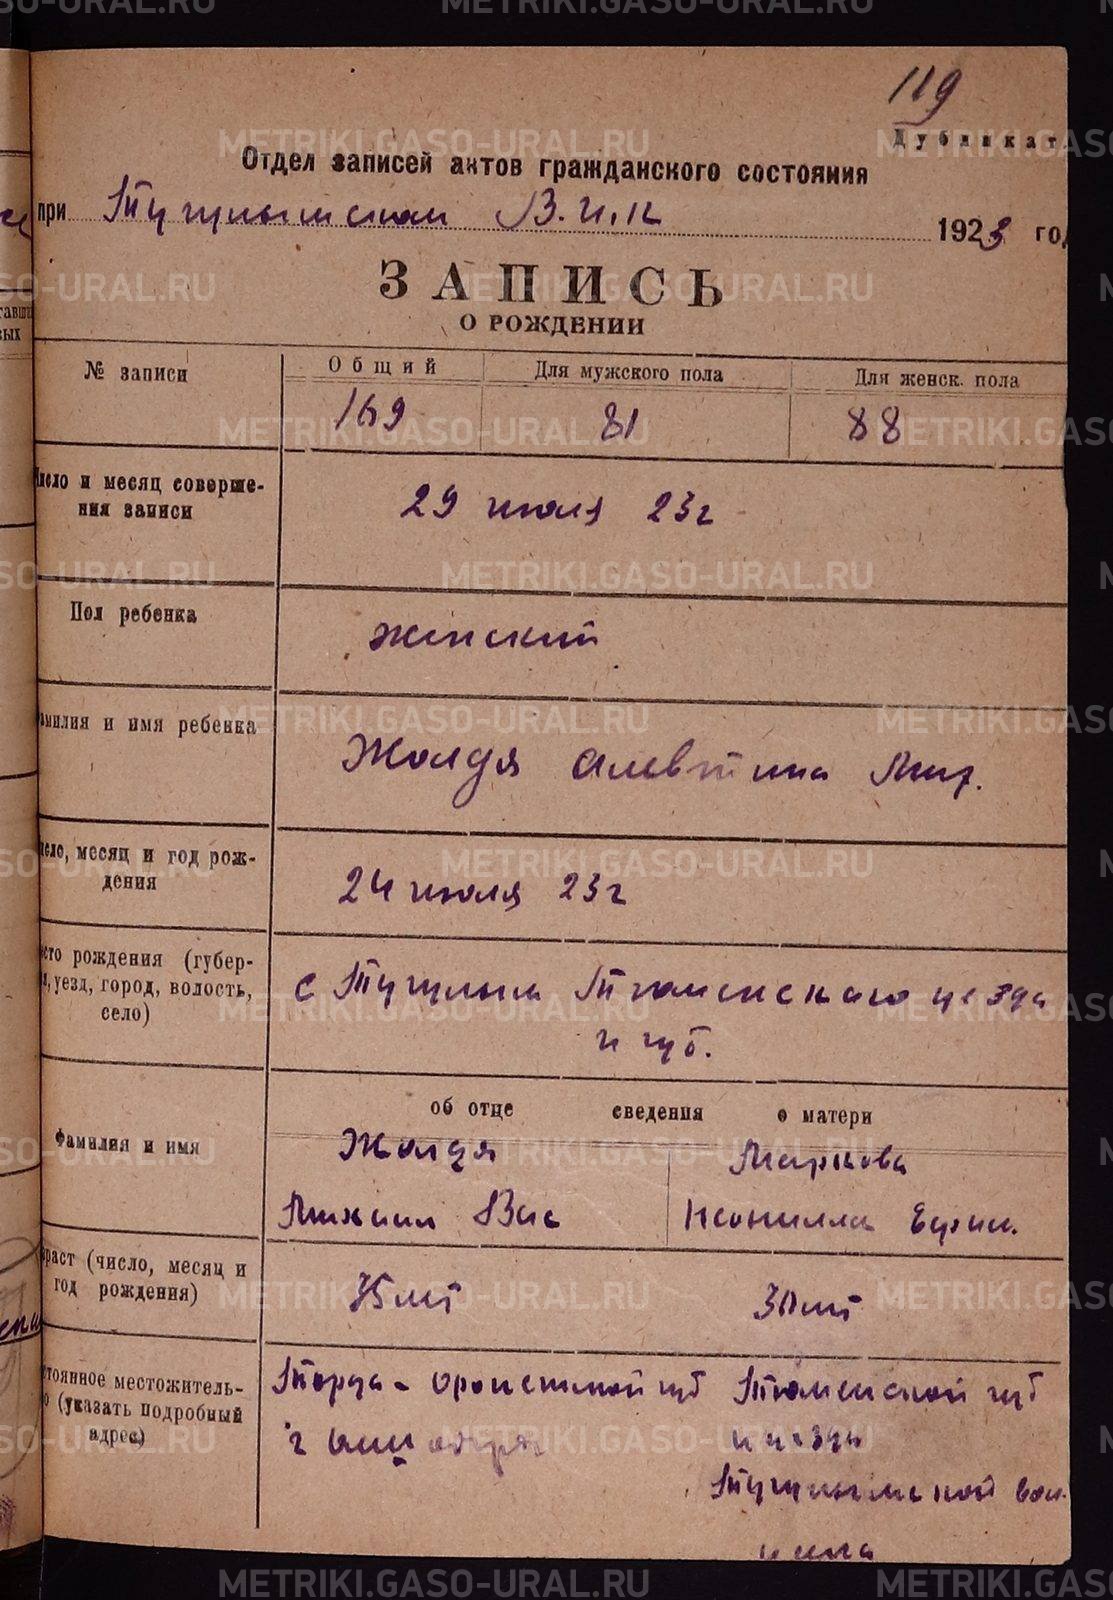 119
Дубликат
Отдел записей актов гражданского состояния
при Тугулымском В.И.К 1923 год
ЗАПИСЬ
О РОЖДЕНИИ
№ записи Общий Для мужского пола Для женск. пола
169 81 88
Число и месяц соверше-
ния записи
29 июля 23г
Пол ребенка
женский
Фамилия и имя ребенка
Жолдя Алевтина Мих.
Число, месяц и год рож-
дения
24 июля 23г
место рождения (губер-
, уезд, город, волость,
село)
с Тугулым Тюменскаго уезда
и губ.
об отце сведения о матери
Фамилия и имя
Жолдя Маркова
Михаил Вас Неонилла
возраст (число, месяц и
год рождения)
35 лет 30 лет
постоянное местожитель-
(указать подробный
адрес)
губ Тюменской губ
г и уезда
Тугулымской вол.
и села
METRIKI.GASO-URAL.RU